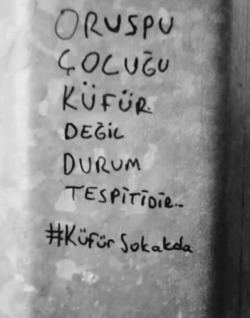 ORUSPU
ÇOCUĞU
KÜFÜR
DEĞİL
DURUM
TESPİTİDİR..
#Küfür Sokakda